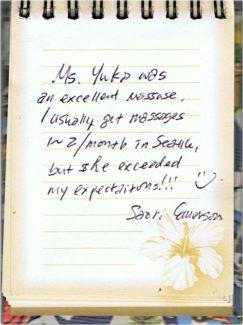 Ms. Yuko was
an excellent massuse.
I usually get massages
~ 2/month in Seattle,
but she exceeded
my expectations!!! :)
Saori Emerson